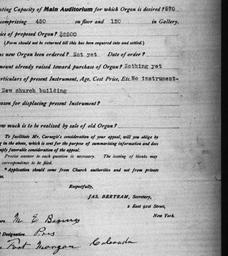 ating Capacity of Main Auditorium for which Organ is desired? 570
comprising 420 on floor and 150 in Gallery.
ice of proposed Organ? $2200
(Form should not be returned till this has been organized into and settled.)
as new Organ been ordered? Not yet Date of order?
mount already raised toward purchase of Organ? Nothing yet
articulars of present Instrument, Age, Cost Price, Etc. No instrument-
New church building
eason for displacing present Instrument?
ow much is to be realised by sale of old Organ?
To facilitate Mr. Carnegie's consideration of your appeal, will you oblige by
ing in the above, which is sent for the purpose of summarizing information and does
imply favorable consideration of the appeal.
Precise answer to each question is necessary. The issuing of blanks may
correspondence to be filed.
* Application should come from Church authorities and not from private
Respectfully,
JAS. BERTRAM, Secretary,
2 East 91st Street,
New York.
M E
Designation. Pres
Fort Morgan Colorado